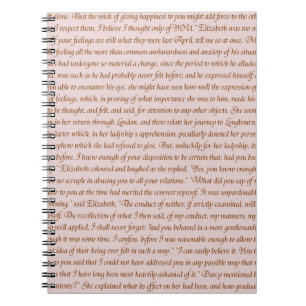 alone. That the wish of giving happiness to you might add force to the oth
I respect them, I believe I thought only of YOU." Elizabeth was too m
your feelings are still what they were last April, tell me so at once. M
feeling all the more than common awkwardness and anxiety of his situa
had undergone so material a change, since the period to which he alluded
was such as he had probably never felt before; and he expressed himself
een able to encounter his eye, she might have seen how well the expression o
feelings, which, in proving of what importance she was to him, made his
be thought, and felt, and said, for attention to any other objects. She soon
in her return through London, and there relate her journey to Longbourn,
latter which, in her ladyship's apprehension, peculiarly denoted her perver
ephew which she had refused to give. But, unluckily for her ladyship,
before. I knew enough of your disposition to be certain that, had you been
" Elizabeth coloured and laughed as she replied, "Yes, you know enough
no scruple in abusing you to all your relations." "What did you say of
to you at the time had merited the severest reproof. It was unpardonable
ning," said Elizabeth. "The conduct of neither, if strictly examined, will
The recollection of what I then said, of my conduct, my manners, my
so well applied, I shall never forget: 'had you behaved in a more gentlemanl
ugh it was some time, I confess, before I was reasonable enough to allow t
idea of their being ever felt in such a way." "I can easily believe it. You
you said that I could not have addressed you in any possible way that wou
that I have long been most heartily ashamed of it." Darcy mentioned h
contents?" She explained what its effect on her had been, and how gradu